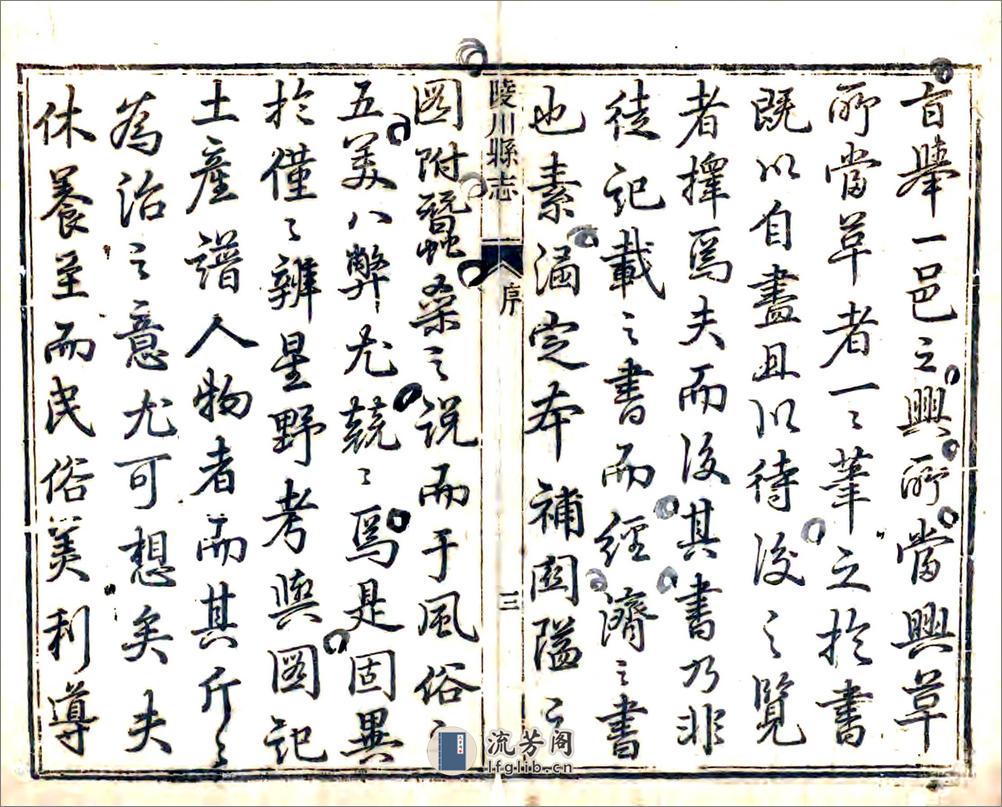 舉一邑之興所當興革
所當革者一〻筆之於書
既以自盡且以待後之覽
者擇焉夫而後其書乃非
徒記載之書而經濟之書
也素定本補関隘之
陵川縣志 序 三
圖附蠶桑之說而于風俗之
五美八弊尤兢〻焉是固異
於僅〻辨星野考輿圖記
土產譜人物者而其斤〻
為治之意尤可想矣夫
休養至而民俗美利導
流芳阁
lfglib.cn